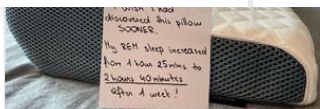 I wish I had
discovered this pillow
SOONER.
My REM sleep increased
from 1 hour 25 mins to
2 hours 40 minutes
after 1 week!